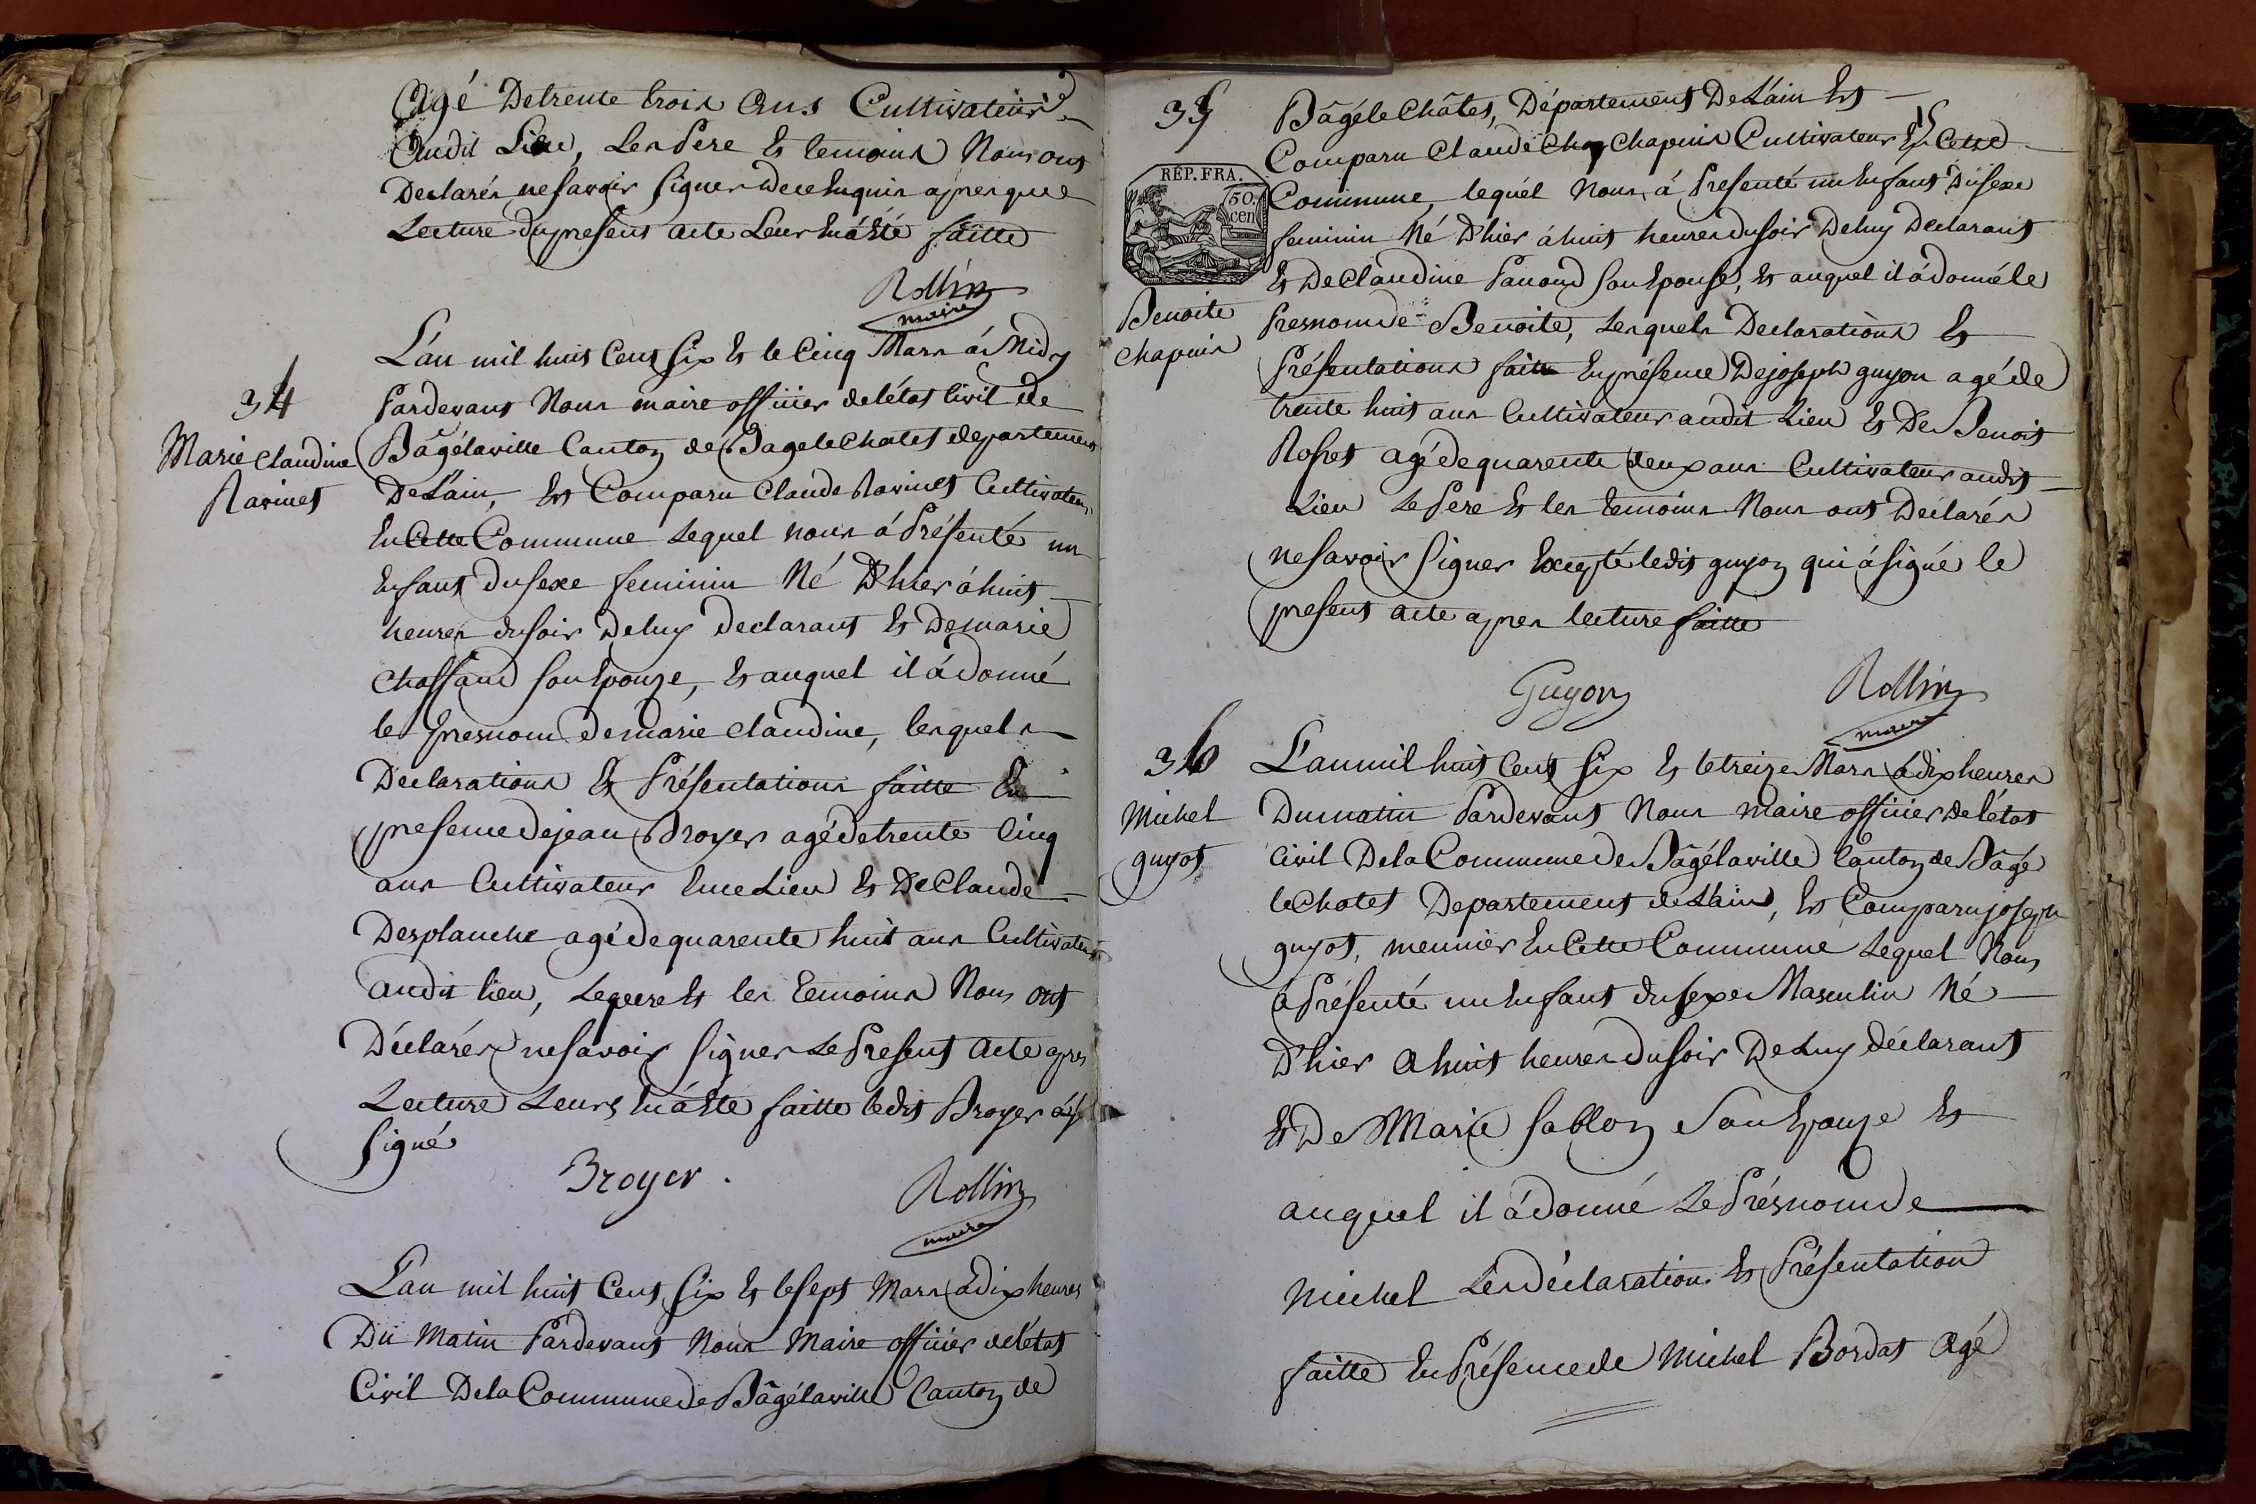 Agé Detrente trois Ans Cultivateur
Audit Lieu, Les Pere Et temoins Nous ont
Declarés nesavoir Signer dece Enquis apres que
Lecture Du present acte Leur Eu á Eté faitte
Rollin
maire
34
Marie Claudine
Ravinet
L'an mil huit Cent Six Et le Cinq Mars á Midy
Pardevant Nous maire officier del'état Civil de
Bâgélaville Canton de Bagele Chatel departement
De L'ain, Est Comparu Claude Ravinet Cultivateur
En Cette Commune Lequel nous á Présenté un
Enfant Du Sexe feminin Né D'hier á huit
heures du soir De luy Declarant Et De marie
Chossand son Epouze, Et auquel il á Donné
le presnom de marie Claudine, lesquels
Declarations Et Présentations faitte En
presence de jean Broyer agé de trente Cinq
ans Cultivateur En ce Lieu Et De Claude
Desplanche agé de quarente huit ans Cultivateur
audit lieu, Le pere Et les temoins Nous ont
Déclarés ne savoir Signer Le Present Acte apres
Lecture Leurs En á Eté faitte ledit Broyer á
Signé
Broyer.
Rollin
maire
L'an mil huit Cent Six Et le sept Mars á dix heures
Du Matin Pardevant Nous Maire officier de l'état
Civil De la Commune de Bâgélaville Canton de
35
RÉP. FRA.
50.
cen
Benoite
Chapuis
Bâgé le Châtel, Département De L'ain Est
Comparu Claude Chapuis Cultivateur En Cette
Commune, lequél Nous á Presenté un Enfant Du Sexe
feminin Né D'hier á huit heures du soir De luy Declarant
Et De Claudine Panoud son Epouse, Et auquel il á donné le
Presnom de Benoite, Lesquels Declarations Et
Présentations faitte En présence De joseph guyon agé de
trente huit ans Cultivateur audit Lieu Et De Benoit
Rosset agé de quarente deux ans Cultivateur audit
Lieu Le Pere Et les temoins Nous ont Declarés
ne savoir Signer Excepté ledit guyon qui á signé le
present acte apres lecture faitte
Guyon
Rollin
maire
36
Michel
guyot
L'an mil huit Cent Six Et le treize Mars á dix heures
Du matin Pardevant Nous Maire officier de l'état
Civil De la Commune de Bâgélaville Canton de Bâgé
le Chatel Departement de L'ain, Est Comparu joseph
guyot, meunier En Cette Commune Lequel Nous
á Présenté un Enfant du sexe Masculin Né
D'hier á huit heures du soir De Luy déclarant
Et De Marie Sablon Son Epouze Et
auquel il á donné Le Présnom de
Michel Les déclaration Et Présentation
faitte En Présence de Michel Bordat Agé